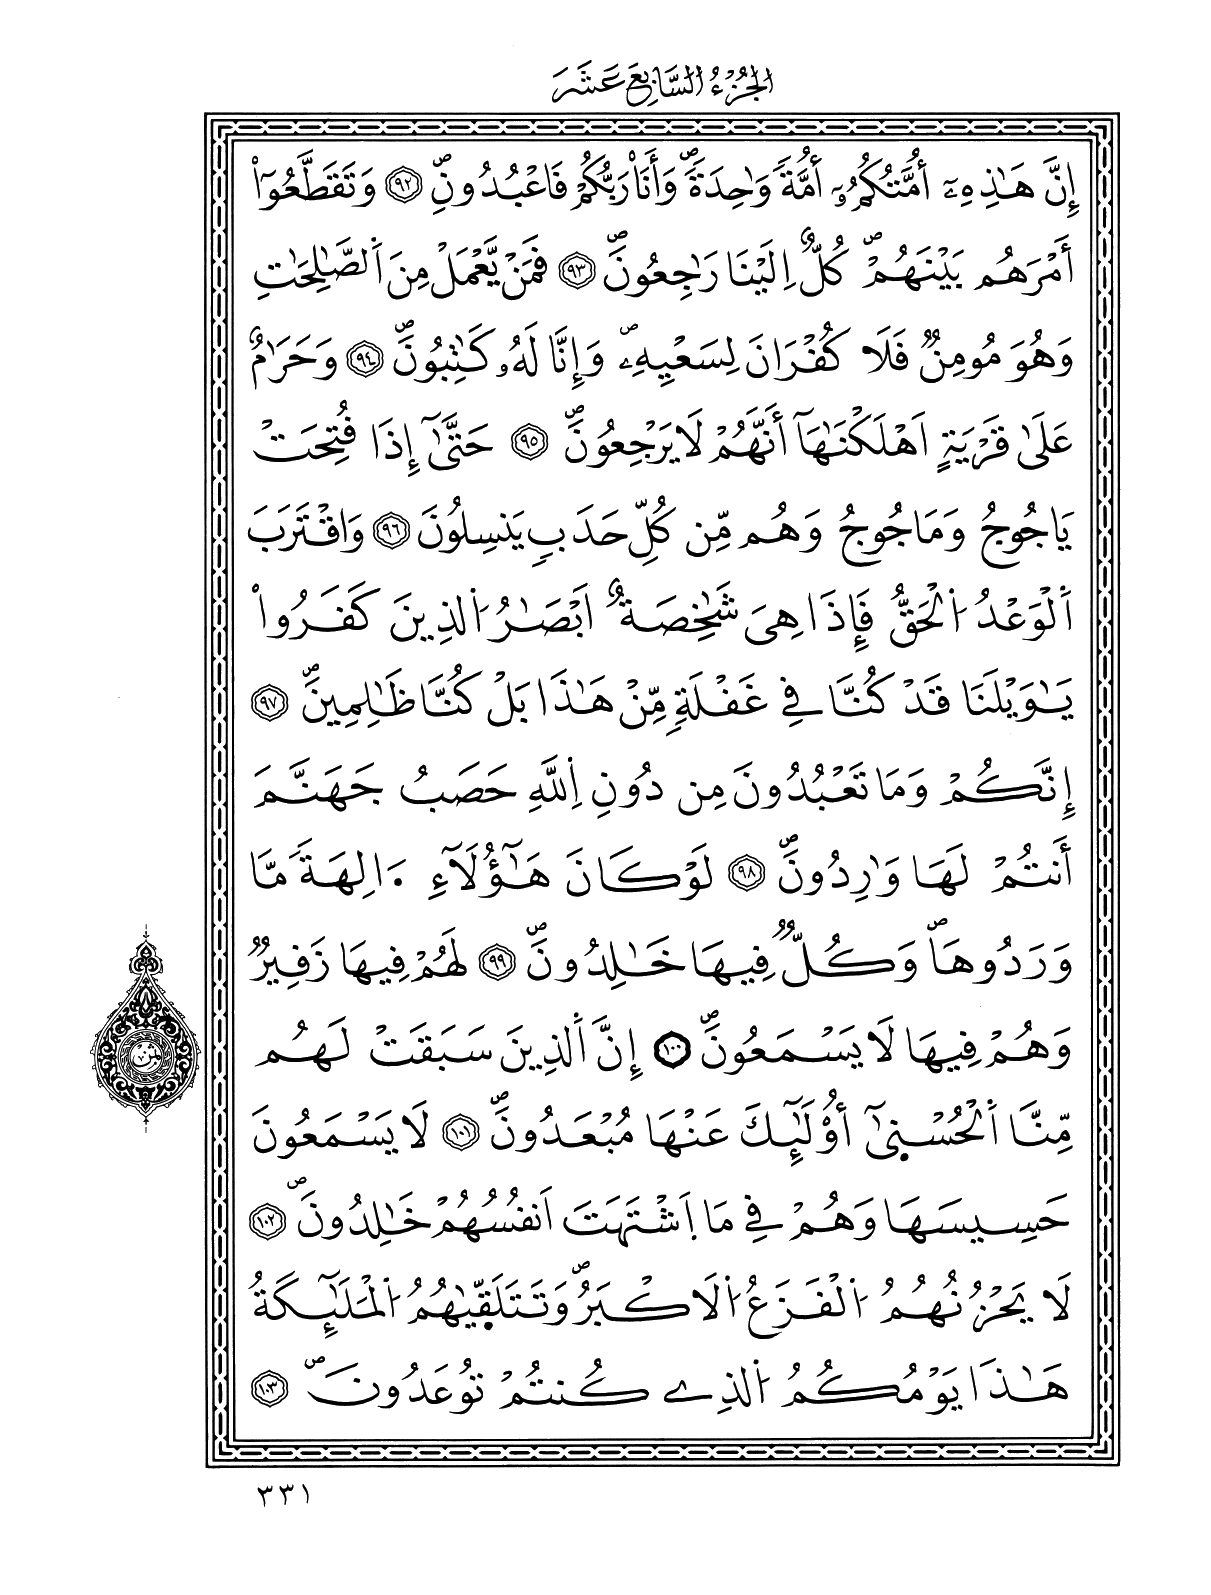 الجزء السابع عشر
إِنَّ هَٰذِهِۦٓ أُمَّتُكُمُۥٓ أُمَّةٗ وَٰحِدَةٗۖ وَأَنَا رَبُّكُمْ فَاعْبُدُونِۖ ٩٢ وَتَقَطَّعُوٓاْ
أَمْرَهُم بَيْنَهُمْۖ كُلٌّ اِلَيْنَا رَٰجِعُونَۖ ٩٣ فَمَنْ يَّعْمَلْ مِنَ اَ۬لصَّٰلِحَٰتِ
وَهُوَ مُومِنٞ فَلَا كُفْرَانَ لِسَعْيِهِۦۖ وَإِنَّا لَهُۥ كَٰتِبُونَۖ ٩٤ وَحَرَٰمٌ
عَلَىٰ قَرْيَةٍ اَهْلَكْنَٰهَآ أَنَّهُمْ لَا يَرْجِعُونَۖ ٩٥ حَتَّىٰٓ إِذَا فُتِحَتْ
يَاجُوجُ وَمَاجُوجُ وَهُم مِّن كُلِّ حَدَبٖ يَنسِلُونَ ٩٦ وَاقْتَرَبَ
اَ۬لْوَعْدُ اُ۬لْحَقُّ فَإِذَا هِيَ شَٰخِصَةٌ اَبْصَٰرُ اُ۬لذِينَ كَفَرُواْ
يَٰوَيْلَنَا قَدْ كُنَّا فِي غَفْلَةٖ مِّنْ هَٰذَا بَلْ كُنَّا ظَٰلِمِينَۖ ٩٧
إِنَّكُمْ وَمَا تَعْبُدُونَ مِن دُونِ اِ۬للَّهِ حَصَبُ جَهَنَّمَ
أَنتُمْ لَهَا وَٰرِدُونَۖ ٩٨ لَوْ كَانَ هَٰٓؤُلَآءِ ءَالِهَةٗ مَّا
وَرَدُوهَاۖ وَكُلّٞ فِيهَا خَٰلِدُونَۖ ٩٩ لَهُمْ فِيهَا زَفِيرٞ
وَهُمْ فِيهَا لَا يَسْمَعُونَۖ ١٠٠ إِنَّ اَ۬لذِينَ سَبَقَتْ لَهُم
مِّنَّا اَ۬لْحُسْنَىٰٓ أُوْلَٰٓئِكَ عَنْهَا مُبْعَدُونَۖ ١٠١ لَا يَسْمَعُونَ
حَسِيسَهَا وَهُمْ فِي مَا اَ۪شْتَهَتَ اَنفُسُهُمْ خَٰلِدُونَۖ ١٠٢
لَا يَحْزُنُهُمُ اُ۬لْفَزَعُ اُ۬لَاكْبَرُۖ وَتَتَلَقَّىٰهُمُ اُ۬لْمَلَٰٓئِكَةُ
هَٰذَا يَوْمُكُمُ اُ۬لذِي كُنتُمْ تُوعَدُونَۖ ١٠٣
ثمن
٣٣١